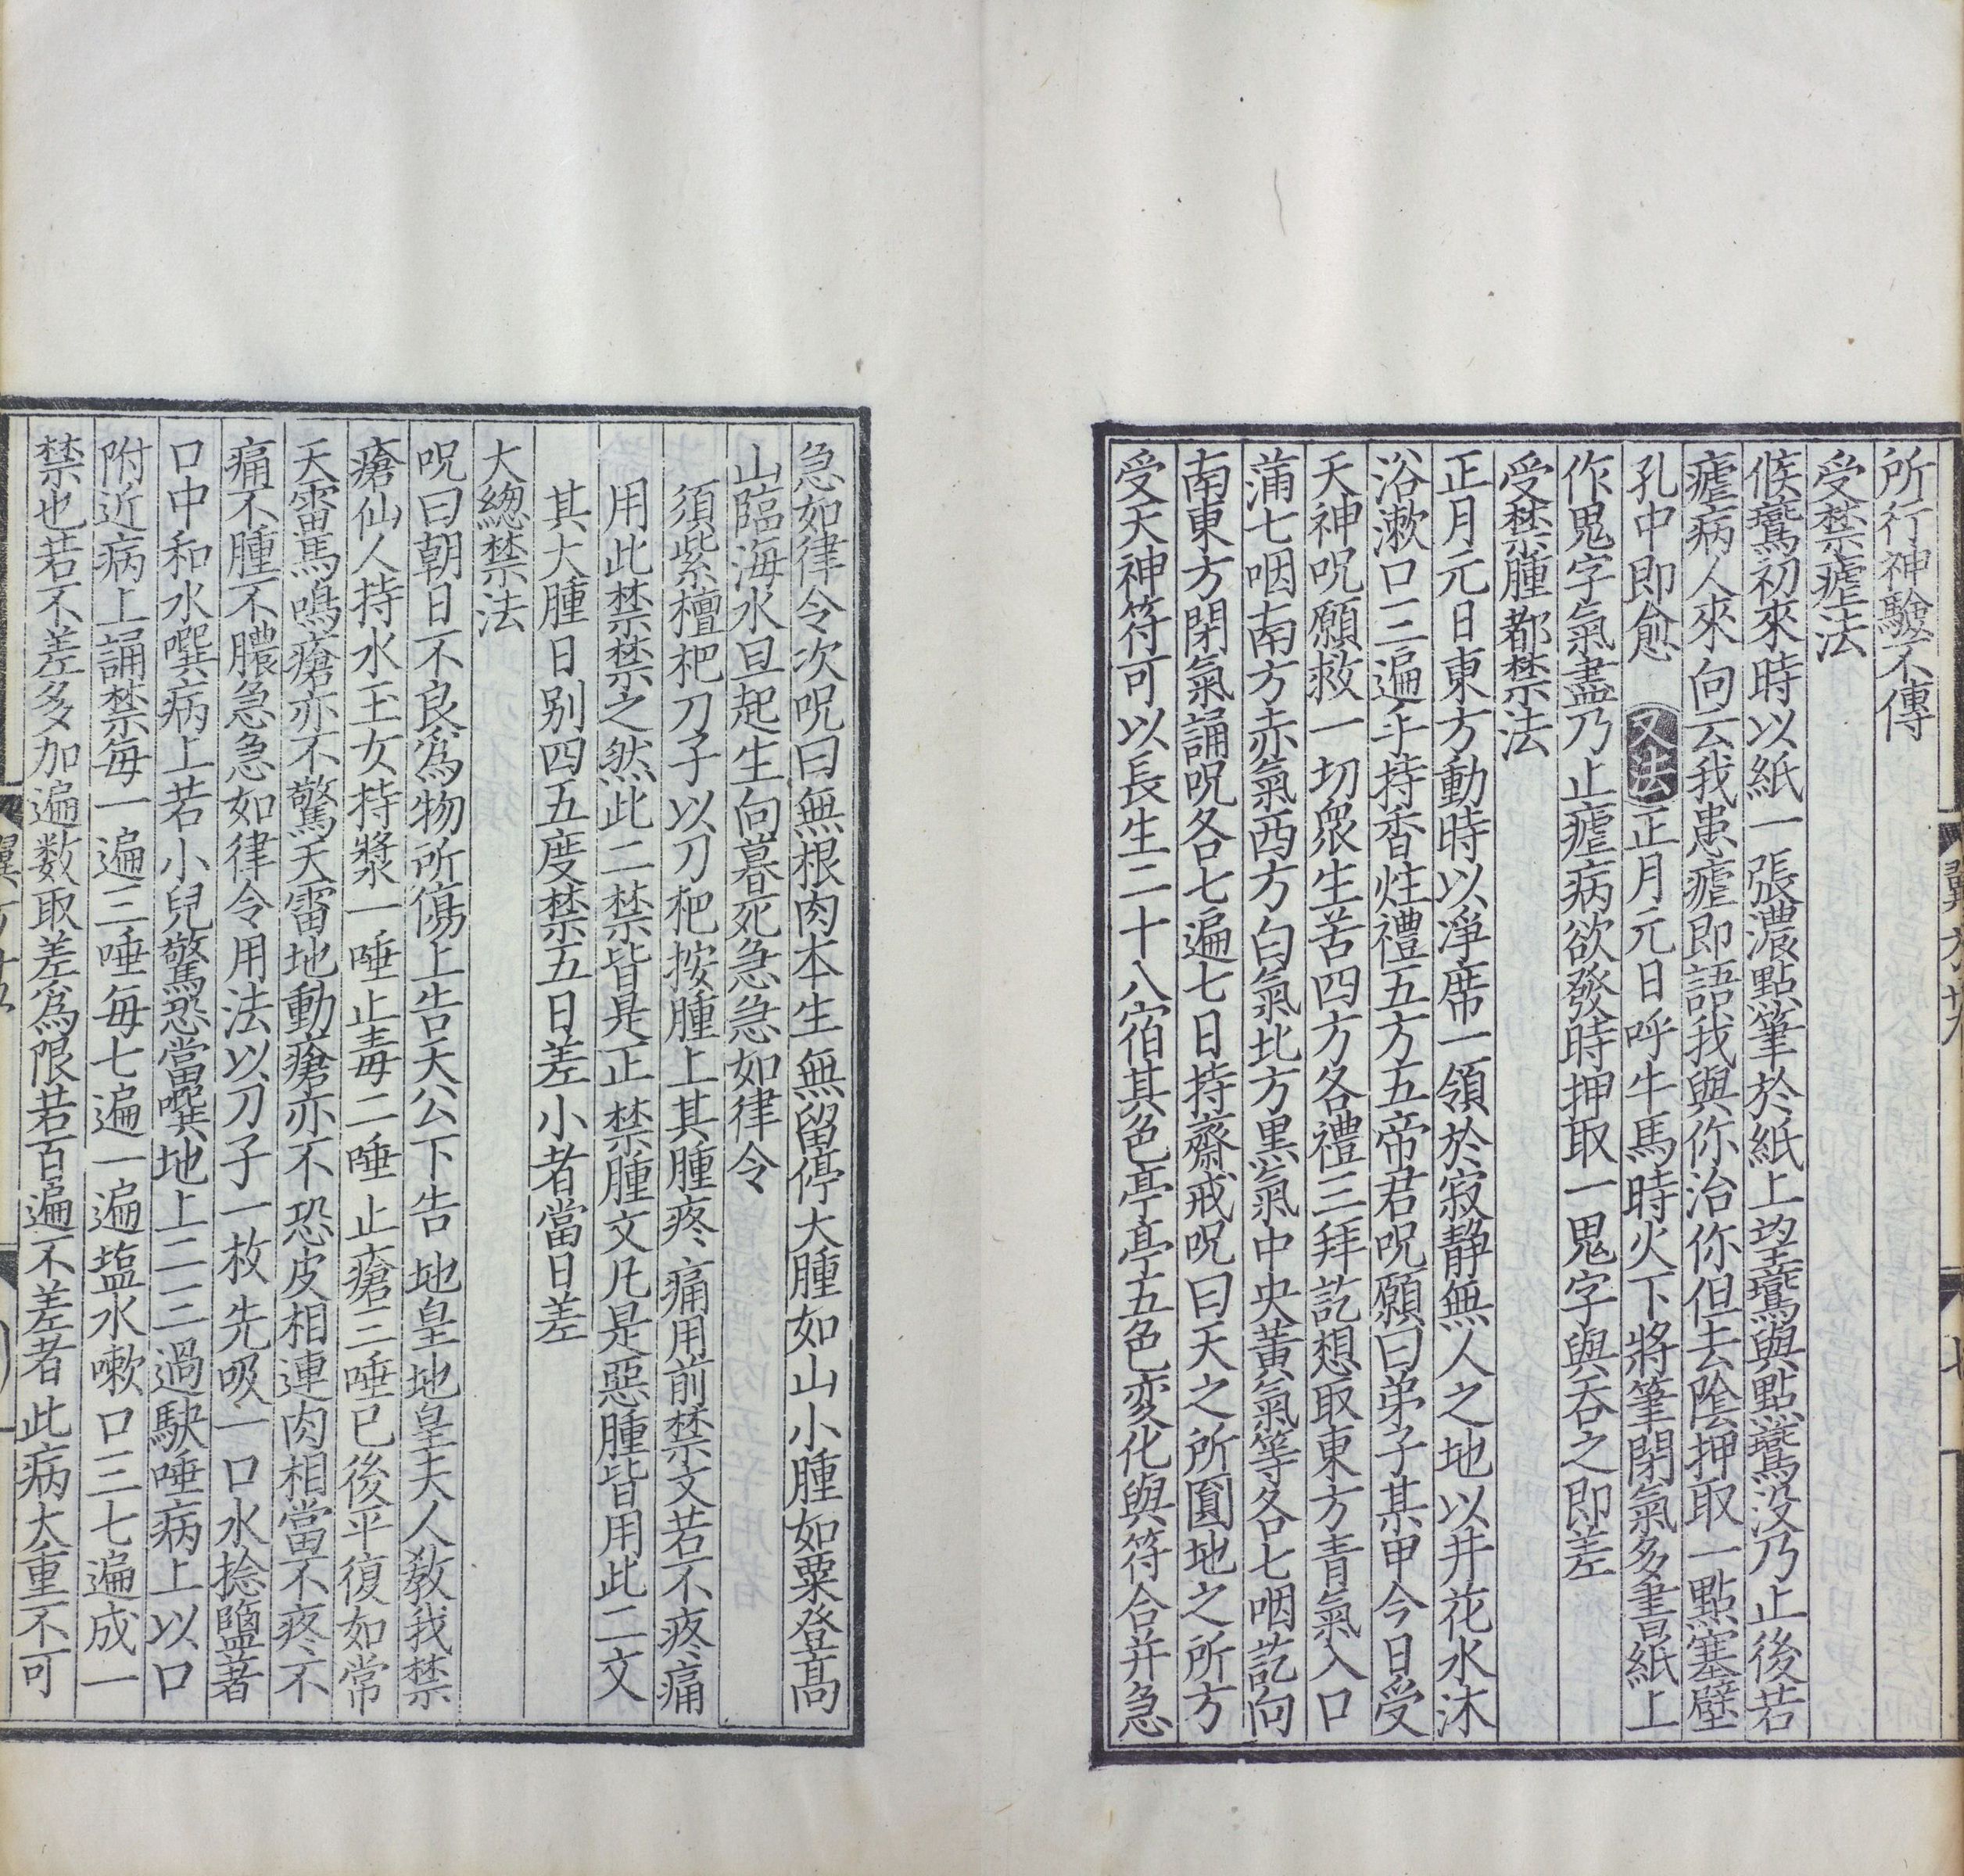 所行神驗不傳
受禁瘧法
候鴽初來時以紙一張濃點筆於紙上望鴽與點鴽没乃止後若
瘧病人來向云我患瘧即語我與你治你但去隂押取一點塞壁
孔中即愈 又法正月元日呼牛馬時火下將筆閉氣多書紙上
作鬼字氣盡乃止瘧病欲發時押取一鬼字與吞之即差
受禁腫都禁法
正月元日東方動時以凈席一領於寂静無人之地以井花水沐
浴漱口三遍手持香炷禮五方五帝君呪願曰弟子某甲今日受
天神呪願救一切衆生苦四方各禮三拜訖想取東方青氣入口
蒲七咽南方赤氣西方白氣北方黒氣中央黃氣等各七咽訖向
南東方閉氣誦呪各七遍七日持齋戒呪曰天之所圓地之所方
受天神符可以長生二十八宿其色亭亭五色变化與符合并急
急如律令次呪曰無根肉本生無留停大腫如山小腫如粟登髙
山臨海水旦起生向暮死急急如律令
須紫檀杷刀子以刀杷按腫上其腫疼痛用前禁文若不疼痛
用此禁禁之然此二禁皆是正禁腫文凡是惡腫皆用此二文
其大腫日别四五度禁五日差小者當日差
大緫禁法
呪曰朝日不良爲物所傷上告天公下告地皇地皇夫人敎我禁
瘡仙人持水玉女持漿一唾止毒二唾止瘡三唾已後平復如常
天雷馬鳴瘡亦不驚天雷地動瘡亦不恐皮相連肉相當不疼不
痛不腫不膿急急如律令用法以刀子一枚先吸一口水捻鹽著
口中和水噀病上若小兒驚恐當噀地上二三過駃唾病上以口
附近病上誦禁每一遍三唾毎七遍一遍塩水嗽口三七遍成一
禁也若不差多加遍数取差爲限若百遍不差者此病大重不可